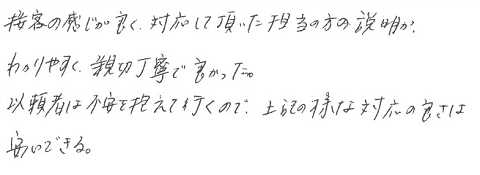 接客の感じが良く、対応して頂いた担当の方の説明が、
わかりやすく、親切丁寧で良かった。
以頼者は不安を抱えて行くので、上記の様な対応の良さは
安心できる。